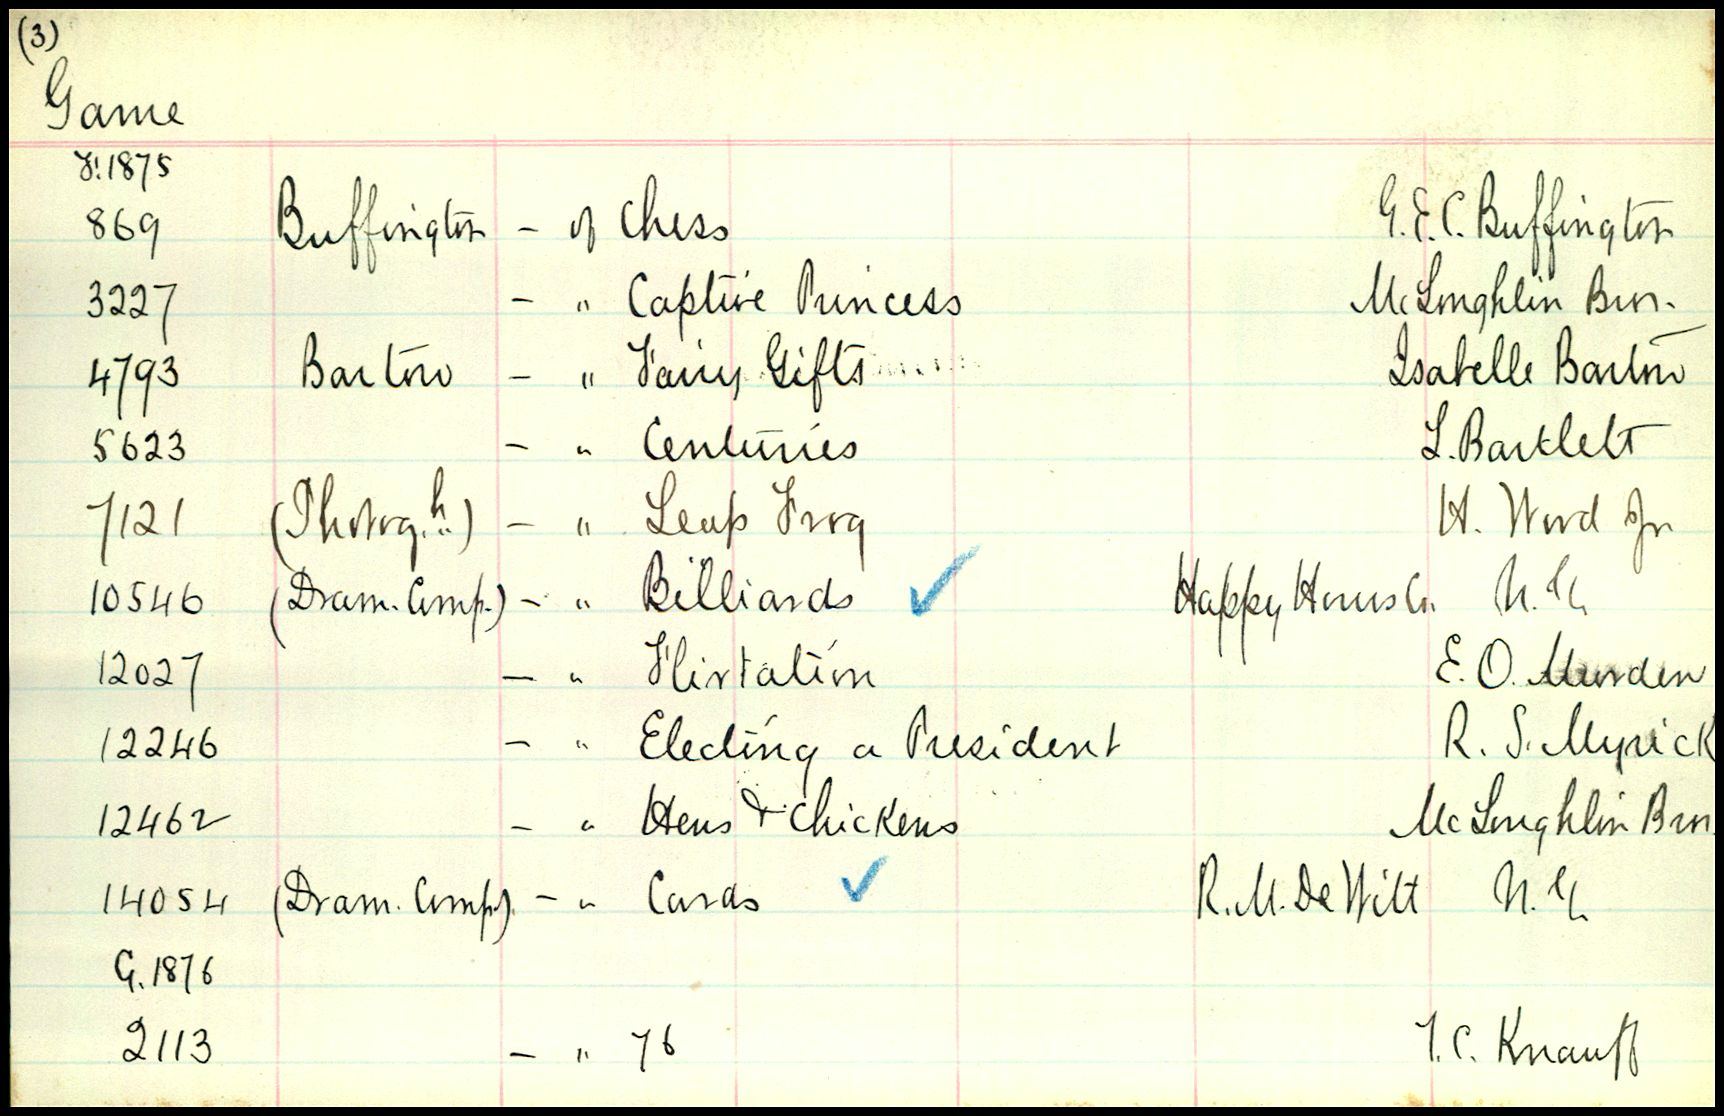 (3)
Game
F. 1875
869 Buffington - of Chess G. E. C. Buffington
3227 - " Captive Princess McLoughlin Bros.
4793 Barton - " Fairy Gifts Isabelle Barton
5623 - " Centuries L. Bartlett
7121 (Photog.h) - " Leap Frog H. Ward Jr
10546 (Dram. Comp.) - " Billiards ✓ Happy Hours Co. N. Y.
12027 - " Flirtation E. O. Murden
12246 - " Electing a President R. S. Myrick
12462 - " Hens & Chickens McLoughlin Bros
14054 (Dram. Comp.) - " Cards ✓ R. M. De Witt N. Y.
G. 1876
2113 - " 76 T. C. Knauff